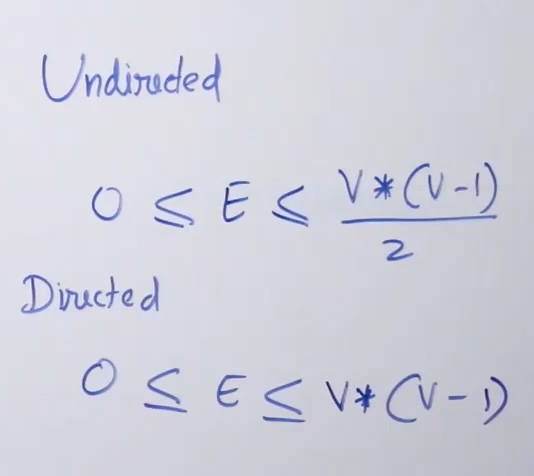 Undirected
0 ≤ E ≤ V*(V-1)/2
Directed
0 ≤ E ≤ V*(V-1)